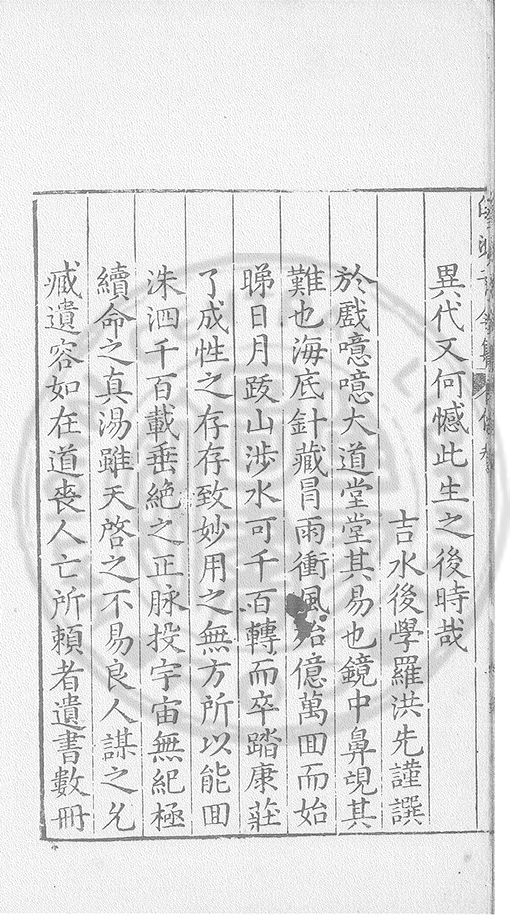 異代又何憾此生之後時哉
吉水後學羅洪先謹譔
於戲噫噫大道堂堂其易也鏡中鼻覘其
難也海底針藏冐雨衝風殆億萬回而始
睇日月跋山涉水可千百轉而卒踏康莊
了成性之存存致妙用之無方所以能回
洙泗千百載垂絶之正脉投宇宙無紀極
續命之真湯雖天啓之不易良人謀之允
臧遺容如在道喪人亡所頼者遺書數冊